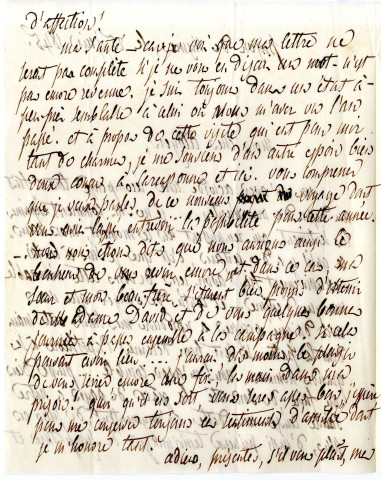 d'affection!
ma santé, car je crois que ma lettre ne
serait pas complète si je ne vous en disais un mot - n'est
pas encore revenue. je suis toujours dans un état à-
peu-près semblable à celui où vous m'avez vu l'an
passé. et à propos de cette visite qui eut pour moi
tant de charmes, je me souviens d'un autre espoir bien
doux conçu à Larespourre et ici. vous comprenez
que je veux parler de ce nouveau voyage dont
vous avez laissé entrevoir la possibilité pour cette année.
nous nous étions dits que nous aurions ainsi le
bonheur de vous revoir encore et dans ce cas, ma
sœur et mon beau-frère s'étaient bien promis d'obtenir
de madame David et de vous quelques bonnes
journées à passer ensemble à la campagne. si cela
pouvait avoir lieu!.... j'aurais du moins le plaisir
de vous serrer encore une fois la main dans ma
prison! quoi qu'il en soit vous serez assez bon j'espère
pour me conserver toujours ces sentiments d'amitié dont
je m'honore tant.
adieu, présentez, s'il vous plaît, me